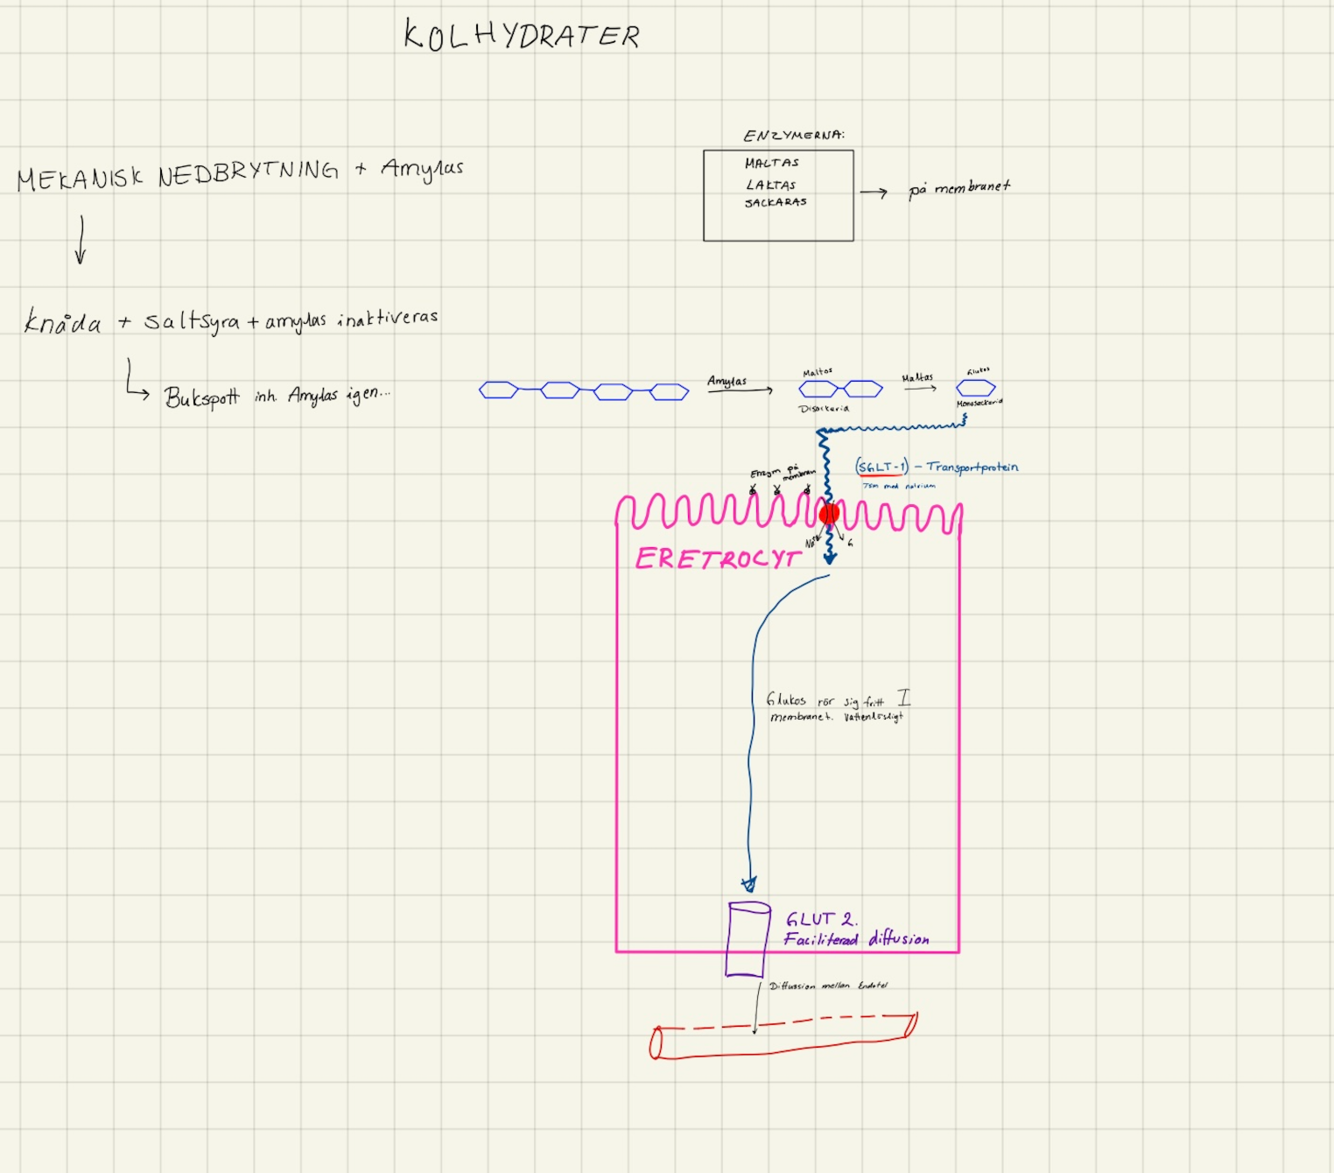 KOLHYDRATER
ENZYMERNA:
MALTAS
LAKTAS
SACKARAS
på membranet
MEKANISK NEDBRYTNING + Amylas
Knåda + Saltsyra + amylas inaktiveras
Bukspott inh. Amylas igen...
Amylas
Maltos
Disackeria
Maltas
Glukos
Monosackerid
(SGLT-1) - Transportprotein
Tsm med natrium
Enzym på
membran
Na+
G
ERETROCYT
Glukos rör sig fritt I
membranet. Vattenlösligt
GLUT 2.
Faciliterad diffusion
Diffusion mellan Endotel